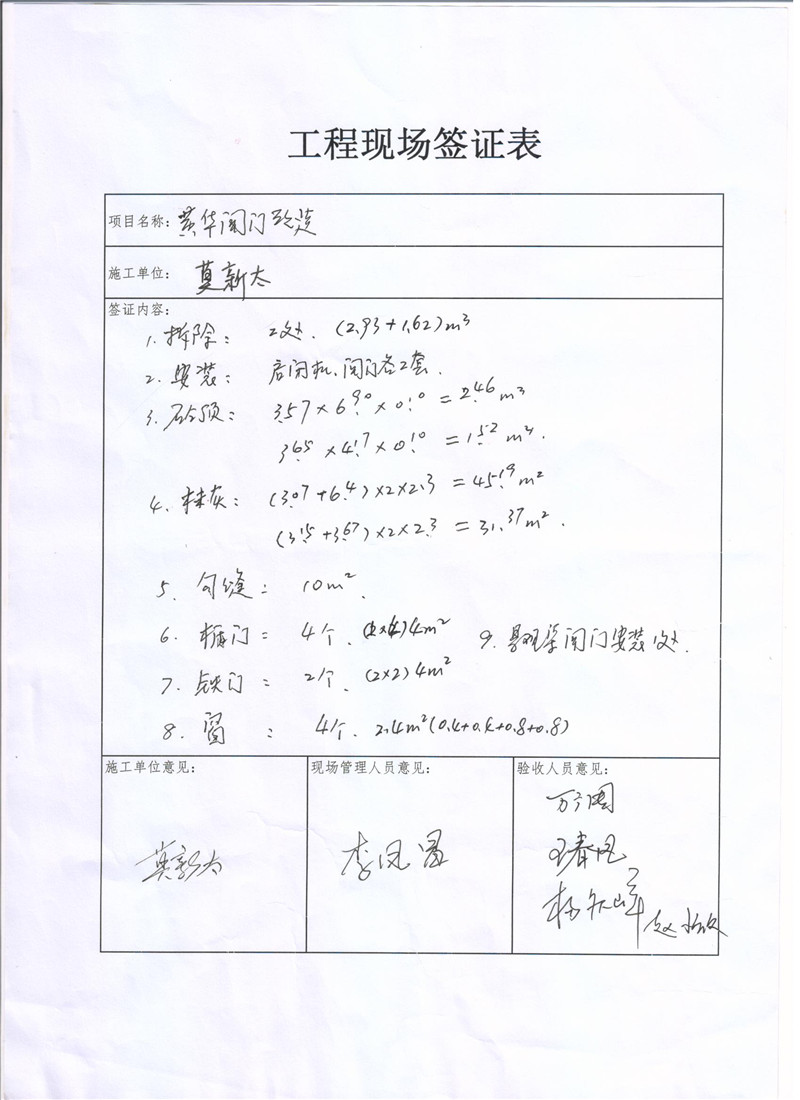 工程现场签证表
项目名称：黄华闸门改造
施工单位：莫新太
签证内容：
1. 拆除： 2处. (2.93+1.62)m³
2. 安装： 启闭机、闸门各2套.
3. 砼预： 3.57×6.90×0.10=2.46m³
3.65×4.17×0.10=1.52m³.
4. 抹灰： (3.07+6.4)×2×2.3=45.19m²
(3.15+3.67)×2×2.3=31.37m².
5. 勾缝： 10m².
6. 门： 4个. 4m² 9. 闸门安装1处.
7. 铁门： 2个. (2×2)4m²
8. 窗： 4个. 2.4m²(0.4+0.4+0.8+0.8)
施工单位意见： 现场管理人员意见： 验收人员意见：
莫新太 李凤